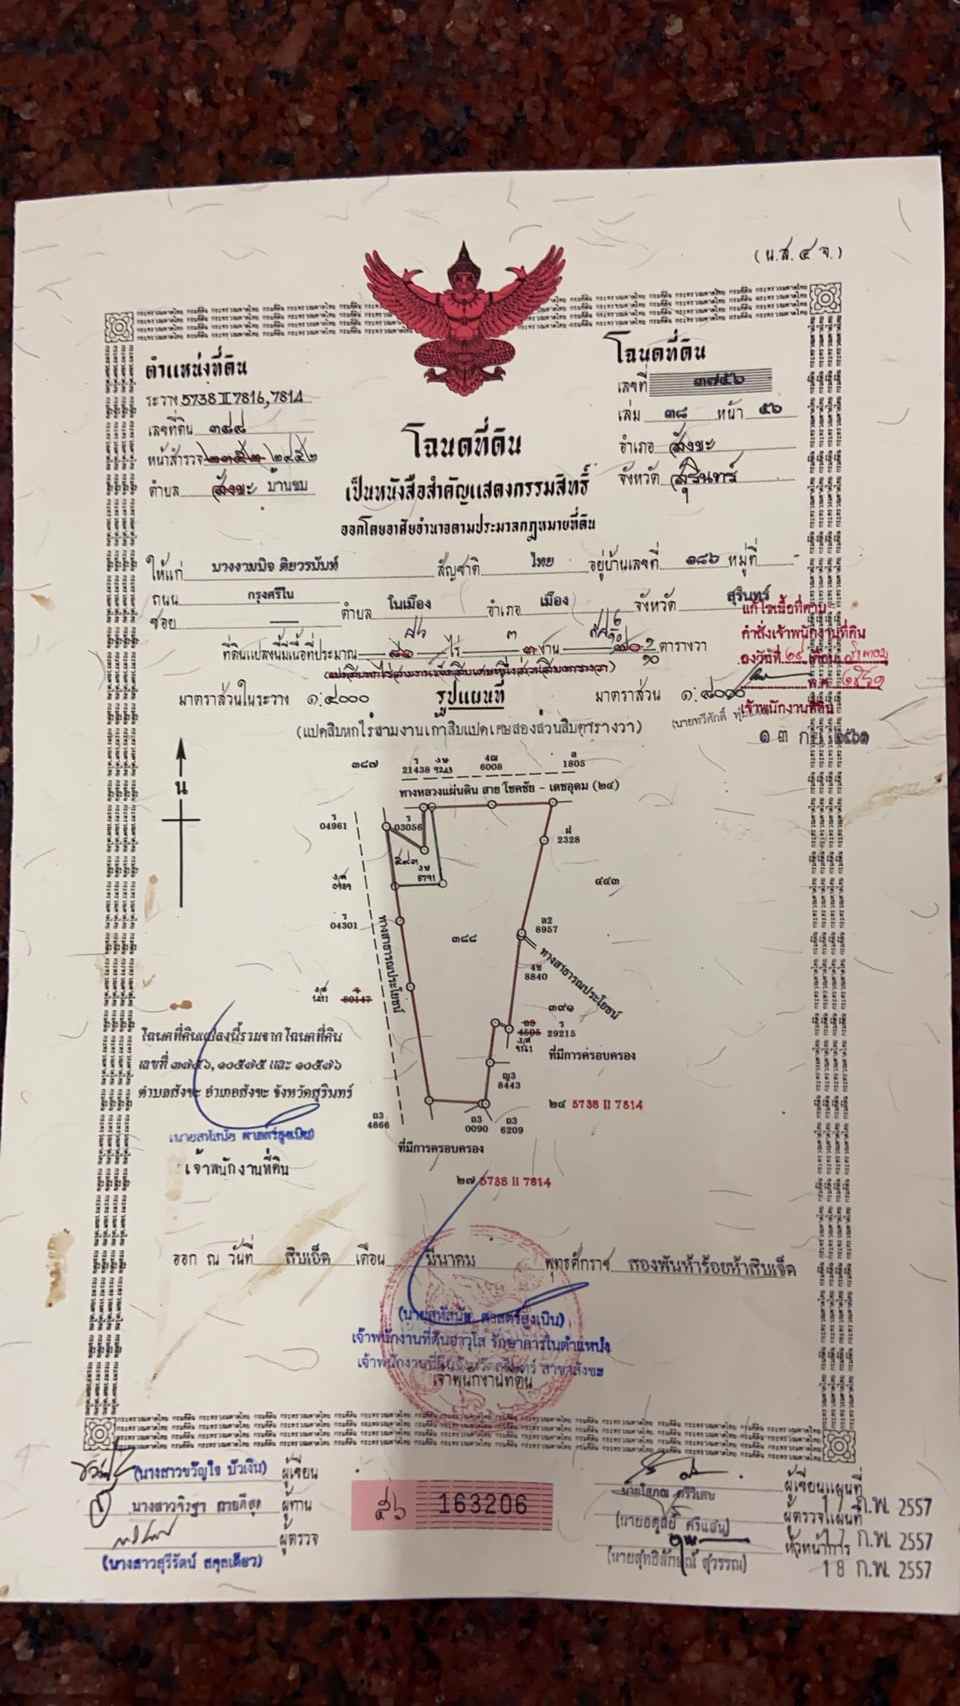 (น.ส.๔ จ.)
ตำแหน่งที่ดิน
ระวาง 5738 II 7816, 7814
เลขที่ดิน ๓๘๘
หน้าสำรวจ ๒๙๕๒
ตำบล สังขะ บ้านชบ
โฉนดที่ดิน
เลขที่ ๓๗๕๖
เล่ม ๓๘ หน้า ๕๖
อำเภอ สังขะ
จังหวัด สุรินทร์
โฉนดที่ดิน
เป็นหนังสือสำคัญแสดงกรรมสิทธิ์
ออกโดยอาศัยอำนาจตามประมวลกฎหมายที่ดิน
ให้แก่ นางงามนิจ ติยวรนันท์ สัญชาติ ไทย อยู่บ้านเลขที่ ๑๘๖ หมู่ที่ -
ถนน กรุงศรีใน ตำบล ในเมือง อำเภอ เมือง จังหวัด สุรินทร์
ซอย
ที่ดินแปลงนี้มีเนื้อที่ประมาณ ๘๖ ไร่ ๓ งาน ตารางวา
แก้ไขเนื้อที่ตาม
คำสั่งเจ้าพนักงานที่ดิน
ลงวันที่ ๒๙
เจ้าพนักงานที่ดิน
มาตราส่วนในระวาง ๑:๔๐๐๐ รูปแผนที่ มาตราส่วน ๑:๘๐๐๐
(แปดสิบหกไร่สามงานเก้าสิบแปดเศษสองส่วนสิบตารางวา)
น
๓๘๗
ร 21438
งษ 7243
4ฌ 6008
ล 1805
ทางหลวงแผ่นดิน สาย โชคชัย - เดชอุดม (๒๔)
ร 04961
ร 03056
ฝ 2328
๕๙๓
งษ 6791
๔๔๓
ร 04301
ทางสาธารณประโยชน์
๓๘๘
อ2 8957
ทางสาธารณประโยชน์
4ช 8840
80147
๓๙๑
4505
ร 29215
ที่มีการครอบครอง
ญ3 8443
๒๔ 5738 II 7814
อ3 4866
อ3 0090
อ3 6209
ที่มีการครอบครอง
๒๗ 5738 II 7814
โฉนดที่ดินแปลงนี้รวมจากโฉนดที่ดิน
เลขที่ ๓๗๕๖, ๑๐๕๗๕ และ ๑๐๕๗๖
ตำบลสังขะ อำเภอสังขะ จังหวัดสุรินทร์
เจ้าพนักงานที่ดิน
ออก ณ วันที่ สิบเอ็ด เดือน มีนาคม พุทธศักราช สองพันห้าร้อยห้าสิบเจ็ด
เจ้าพนักงานที่ดินอาวุโส รักษาการในตำแหน่ง
เจ้าพนักงานที่ดินจังหวัดสุรินทร์ สาขาสังขะ
เจ้าพนักงานที่ดิน
(นางสาวขวัญใจ บัวเงิน) ผู้เขียน
ผู้ทาน
ผู้ตรวจ
(นางสาวสุรีรัตน์ สกุลเดียว)
๕๖ 163206
ผู้เขียนแผนที่
17 ก.พ. 2557
ผู้ตรวจแผนที่
17 ก.พ. 2557
หัวหน้าการ
(นายสุทธิลักษณ์ สุวรรณ)
18 ก.พ. 2557